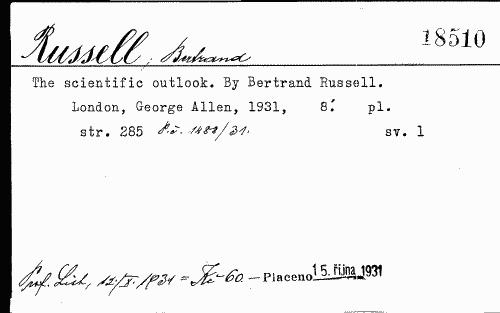 Russell, Bertrand 18510
The scientific outlook. By Bertrand Russell.
London, George Allen, 1931, 8.° pl.
str. 285 P.č. 1480/31. sv. 1
Prof. List, 12/X. 1931 = Kč 60.— Placeno 15. října 1931